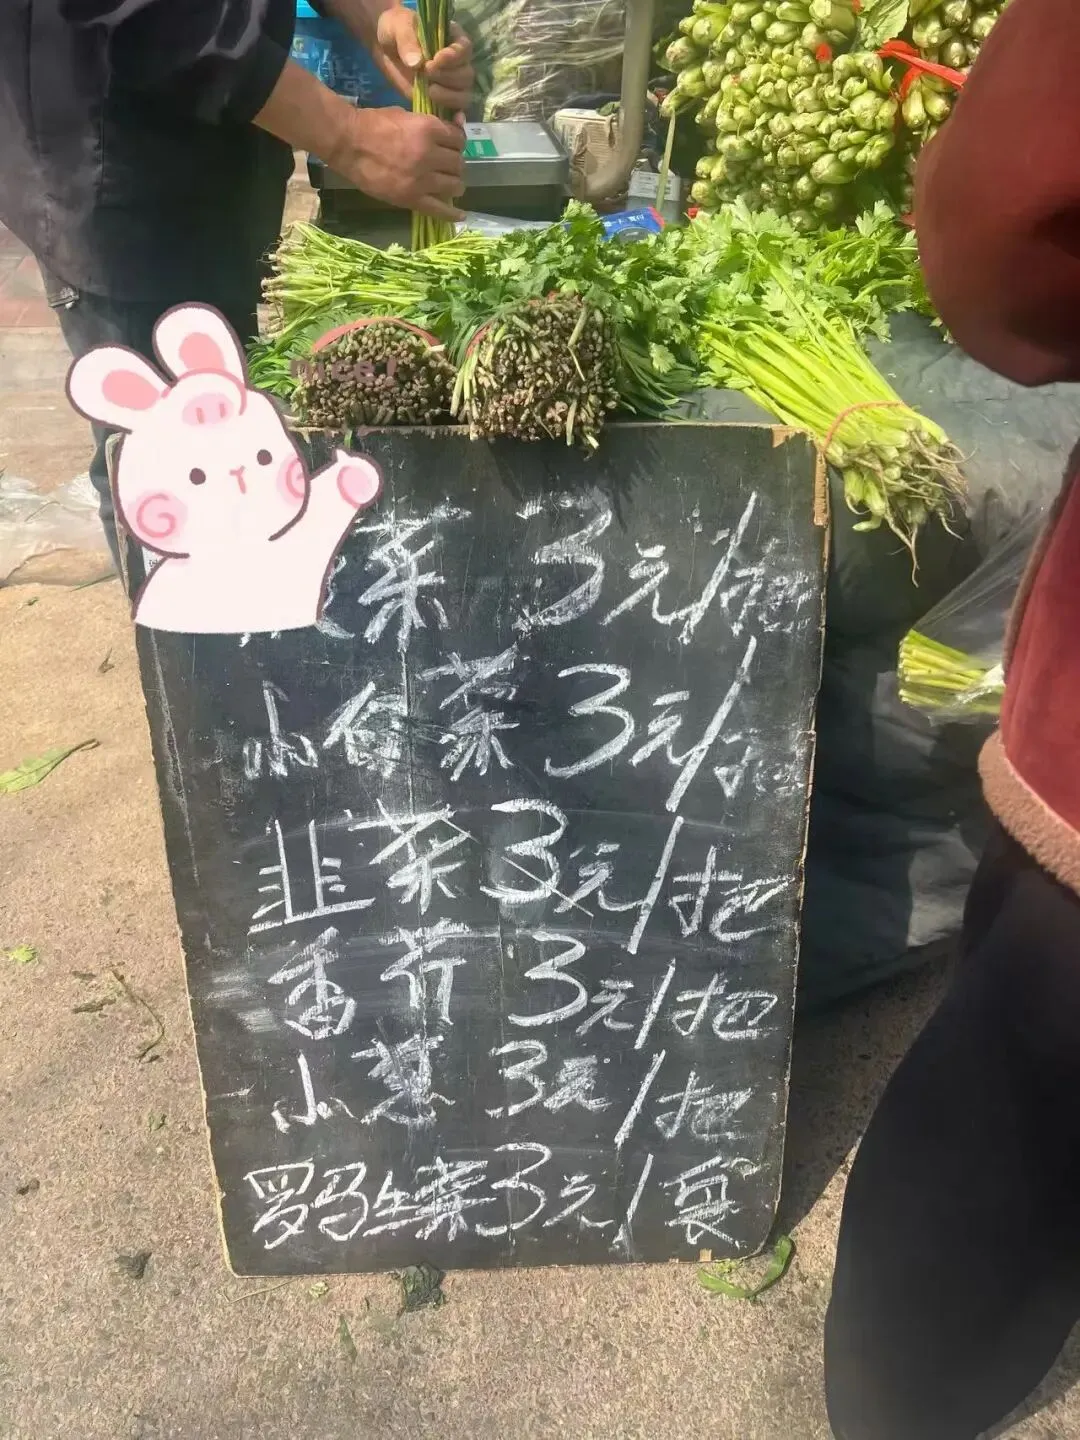 nice!
菜 3元/把
小白菜 3元/把
韭菜 3元/把
香芹 3元/把
小葱 3元/把
罗马生菜 3元/袋